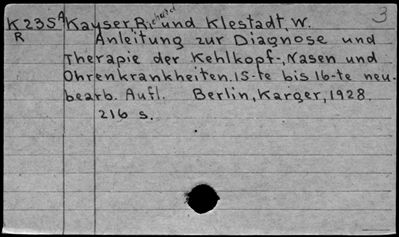 3
K235A Kayser, Richard und Klestadt, W.
R Anleitung zur Diagnose und
Therapie der Kehlkopf-, Nasen und
Ohrenkrankheiten. 15-te bis 16-te neu-
bearb. Aufl. Berlin, Karger, 1928.
216 s.